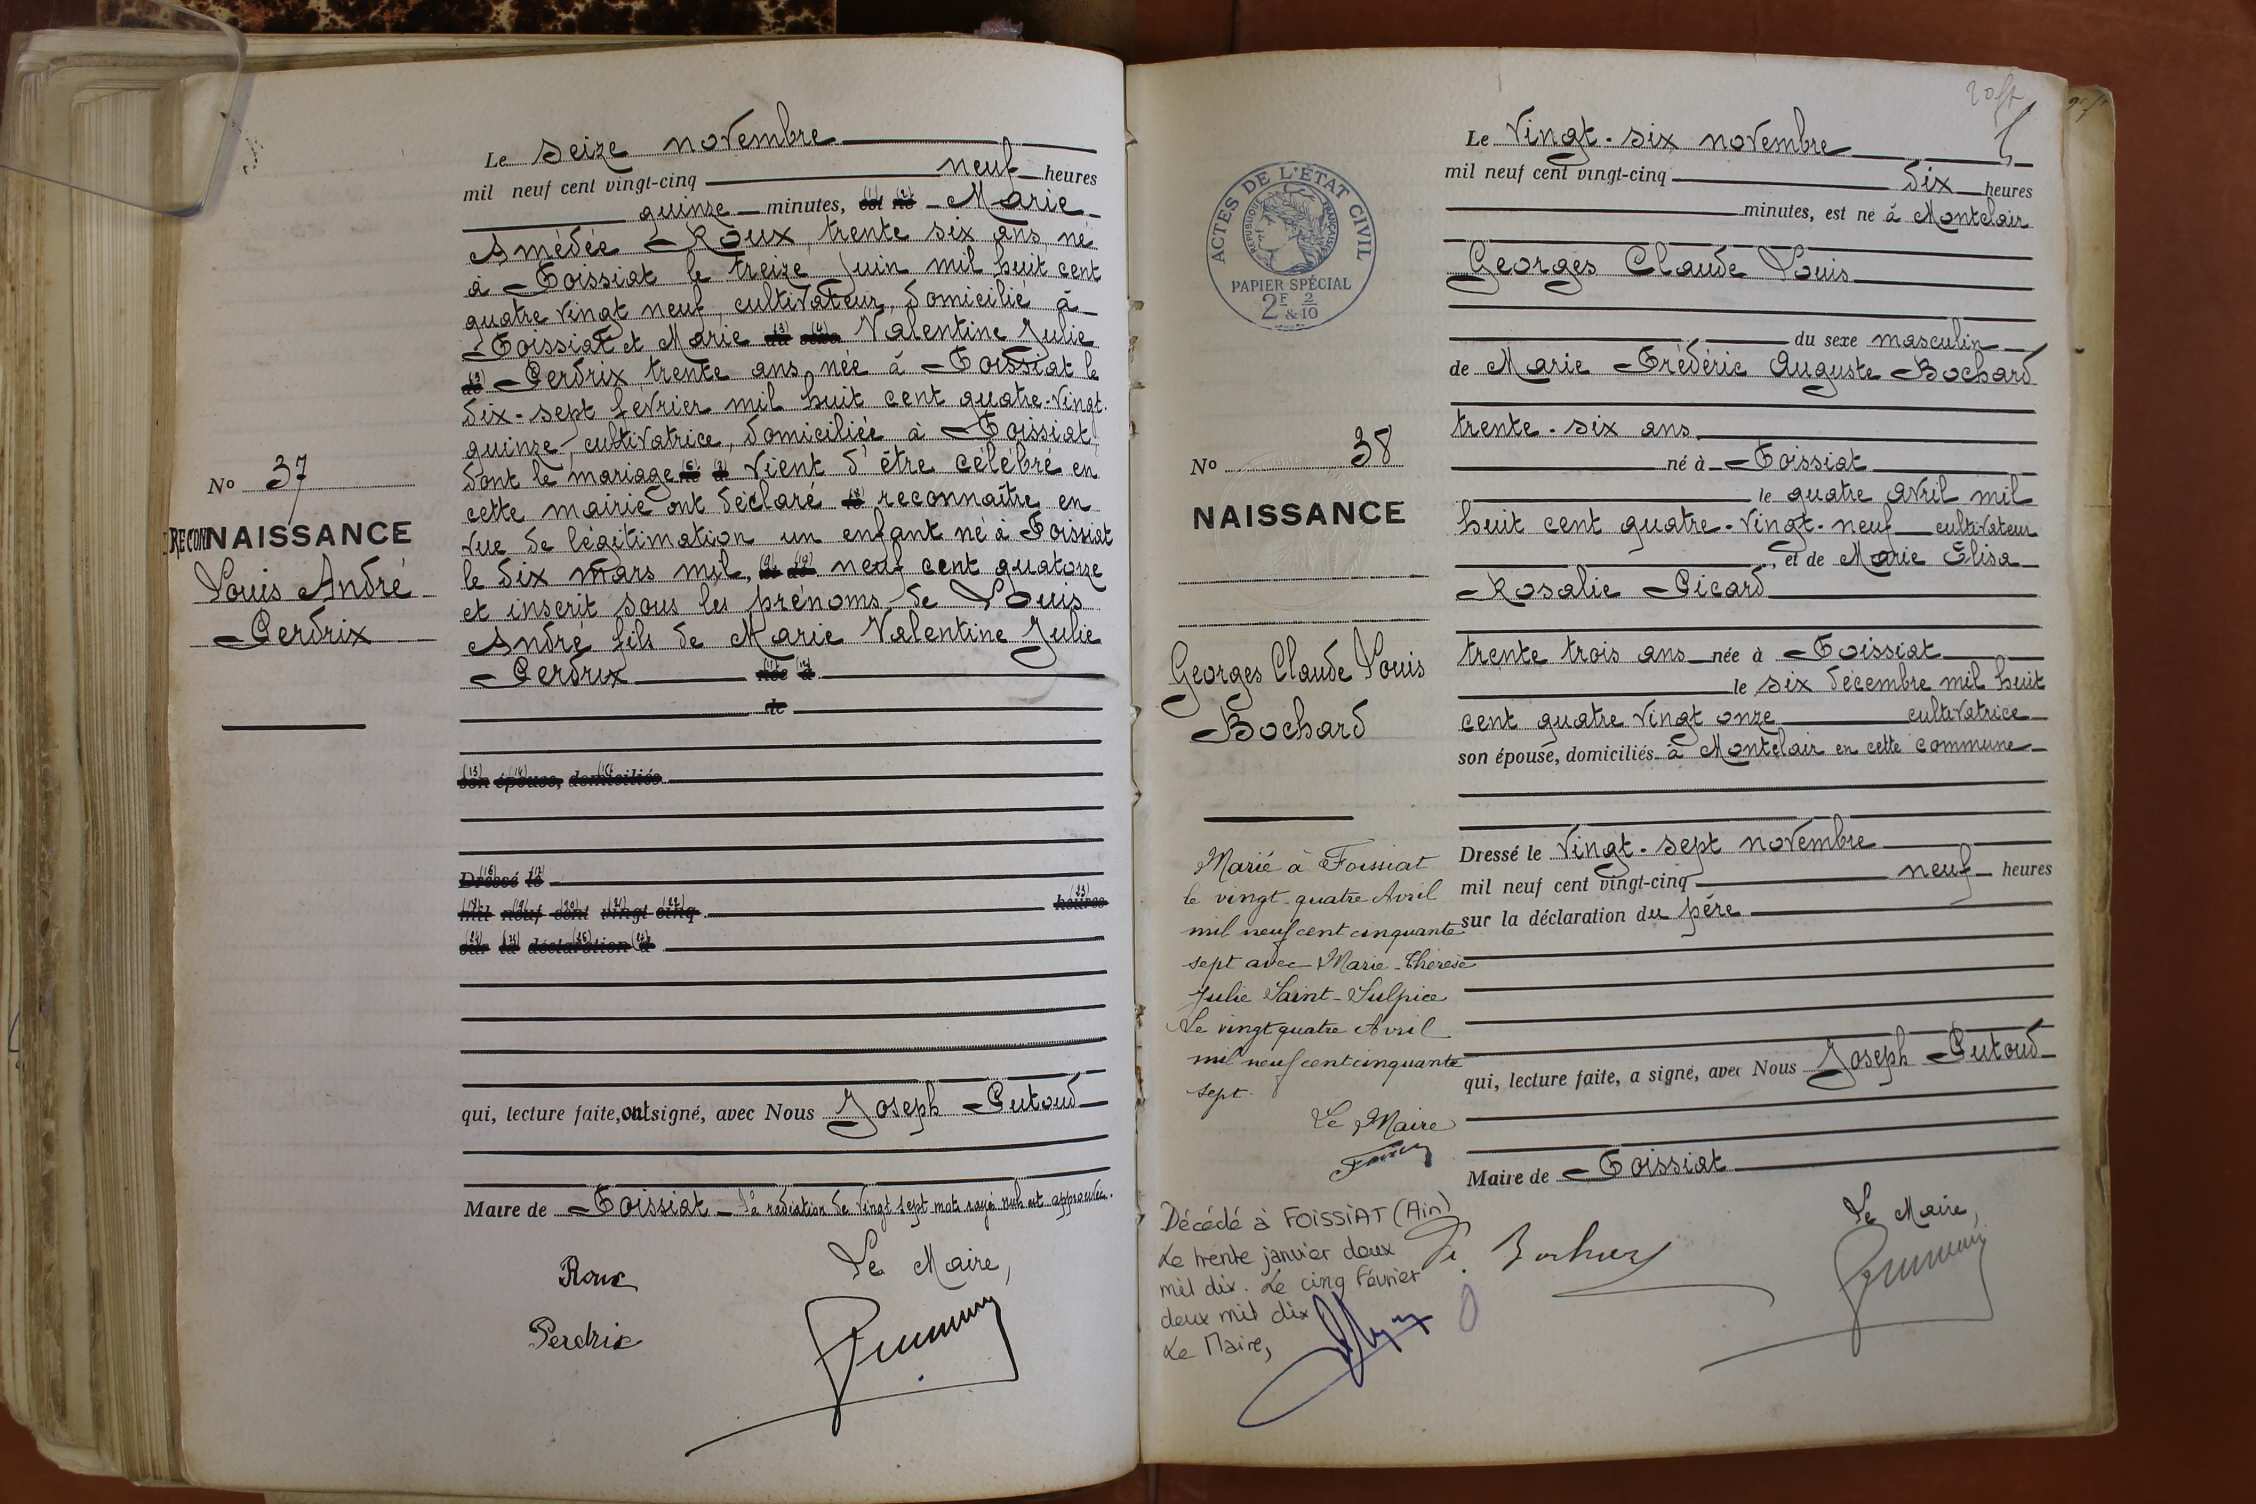 Le seize novembre
mil neuf cent vingt-cinq neuf heures
quinze minutes, (1) est (2) né Marie
Amédée Roux, trente six ans, né
à Foissiat le treize Juin mil huit cent
quatre vingt neuf, cultivateur, domicilié à
Foissiat et Marie (3) du (4) sexe Valentine Julie
(5) de Perdrix, trente ans, née à Foissiat le
dix-sept fevrier mil huit cent quatre-vingt
quinze, cultivatrice, domiciliée à Foissiat,
dont le mariage (6) (7) vient d'être célébré en
cette mairie ont déclaré (8) reconnaître en
vue de légitimation un enfant né à Foissiat
le dix mars mil, (9) (10) neuf cent quatorze
et inscrit sous les prénoms de Louis
André fils de Marie Valentine Julie
Perdrix (11) née (12) à
de
(13) son (14) épouse, (15) domiciliés
No 37
RECONNAISSANCE
Louis André
Perdrix
Dressé le
mil neuf cent vingt-cinq heures
sur la déclaration d
qui, lecture faite, ont signé, avec Nous Joseph Putoud
Maire de Foissiat La radiation de vingt sept mots rayés nuls est approuvée.
Roux
Perdrix
Le Maire,
Le vingt-six novembre
mil neuf cent vingt-cinq dix heures
minutes, est né à Montclair
Georges Claude Louis
du sexe masculin
de Marie Frédéric Auguste Bochard
trente-six ans
né à Foissiat
le quatre avril mil
huit cent quatre-vingt-neuf cultivateur
, et de Marie Élisa
Rosalie Picard
trente trois ans née à Foissiat
le six décembre mil huit
cent quatre vingt onze cultivatrice
son épouse, domiciliés à Montclair en cette commune
Dressé le vingt-sept novembre
mil neuf cent vingt-cinq neuf heures
sur la déclaration du père
qui, lecture faite, a signé, avec Nous Joseph Putoud
Maire de Foissiat
Le Maire,
ACTES DE L'ÉTAT CIVIL
RÉPUBLIQUE FRANÇAISE
PAPIER SPÉCIAL
2F 2/10
No 38
NAISSANCE
Georges Claude Louis
Bochard
Marié à Foissiat
le vingt-quatre Avril
mil neuf cent cinquante
sept avec Marie-Thérèse
Julie Saint-Sulpice
Le vingt quatre Avril
mil neuf cent cinquante
sept.
Le Maire
Décédé à FOISSIAT (Ain)
Le trente janvier deux
mil dix. Le cinq Février
deux mil dix
Le Maire,